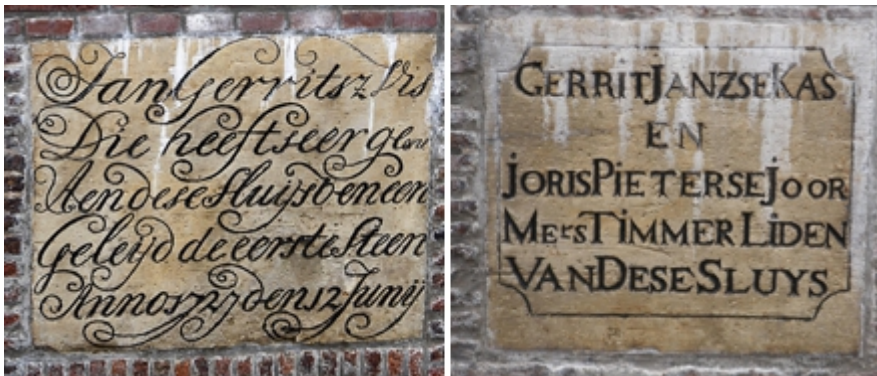 Jan Gerritsz Vis
Die heeft seer gean
Aen dese sluijs beneen
Geleijd de eerste Steen
Anno 1727 den 12 Junij
GERRIT JANZSE KAS
EN
JORIS PIETERSE JOOR
MErs TIMMERLIDEN
VAN DESE SLUYS